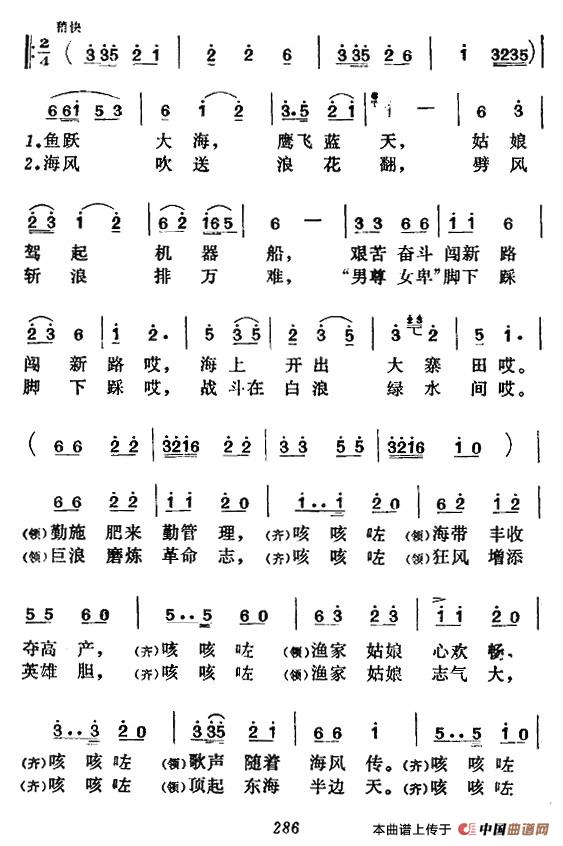 稍快
2/4 ( 3 335 2 1 | 2 2 6 | 3 335 2 6 | 1 3235 )
6 61 5 3 | 6 1 2 | 3·5 2 1 | 1 — | 6 3
1.鱼跃 大海， 鹰飞蓝 天， 姑娘
2.海风 吹送 浪花翻， 劈风
2 3 1 2 | 6 2 165 | 6 — | 3 3 6 6 | 1 1 6
驾起 机器 船， 艰苦奋斗 闯新路
斩浪 排万 难， “男尊女卑”脚下踩
2 3 6 | 1 2· | 5 3 5 | 2 3 5 | 3 2 | 5 1·
闯新路哎，海上 开出 大寨 田哎。
脚下踩哎，战斗在白浪 绿水 间哎。
( 6 6 2 2 | 3216 2 2 | 3 3 5 5 | 3216 1 0 )
6 6 2 2 | 1 1 2 0 | 1·· 1 1 0 | 6 6 1 2
(领)勤施 肥来 勤管 理， (齐)咳 咳咗 (领)海带 丰收
(领)巨浪 磨炼 革命 志， (齐)咳 咳咗 (领)狂风 增添
5 5 6 0 | 5··5 6 0 | 6 3 2 3 | 1 1 2 0
夺高 产， (齐)咳 咳咗 (领)渔家 姑娘 心欢 畅、
英雄 胆， (齐)咳 咳咗 (领)渔家 姑娘 志气 大，
3··3 2 0 | 3 35 2 1 | 6 6 1 | 5··5 1 0
(齐)咳 咳咗 (领)歌声 随着 海风 传。(齐)咳 咳咗
(齐)咳 咳咗 (领)顶起 东海 半边 天。(齐)咳 咳咗
286
本曲谱上传于 中国曲谱网